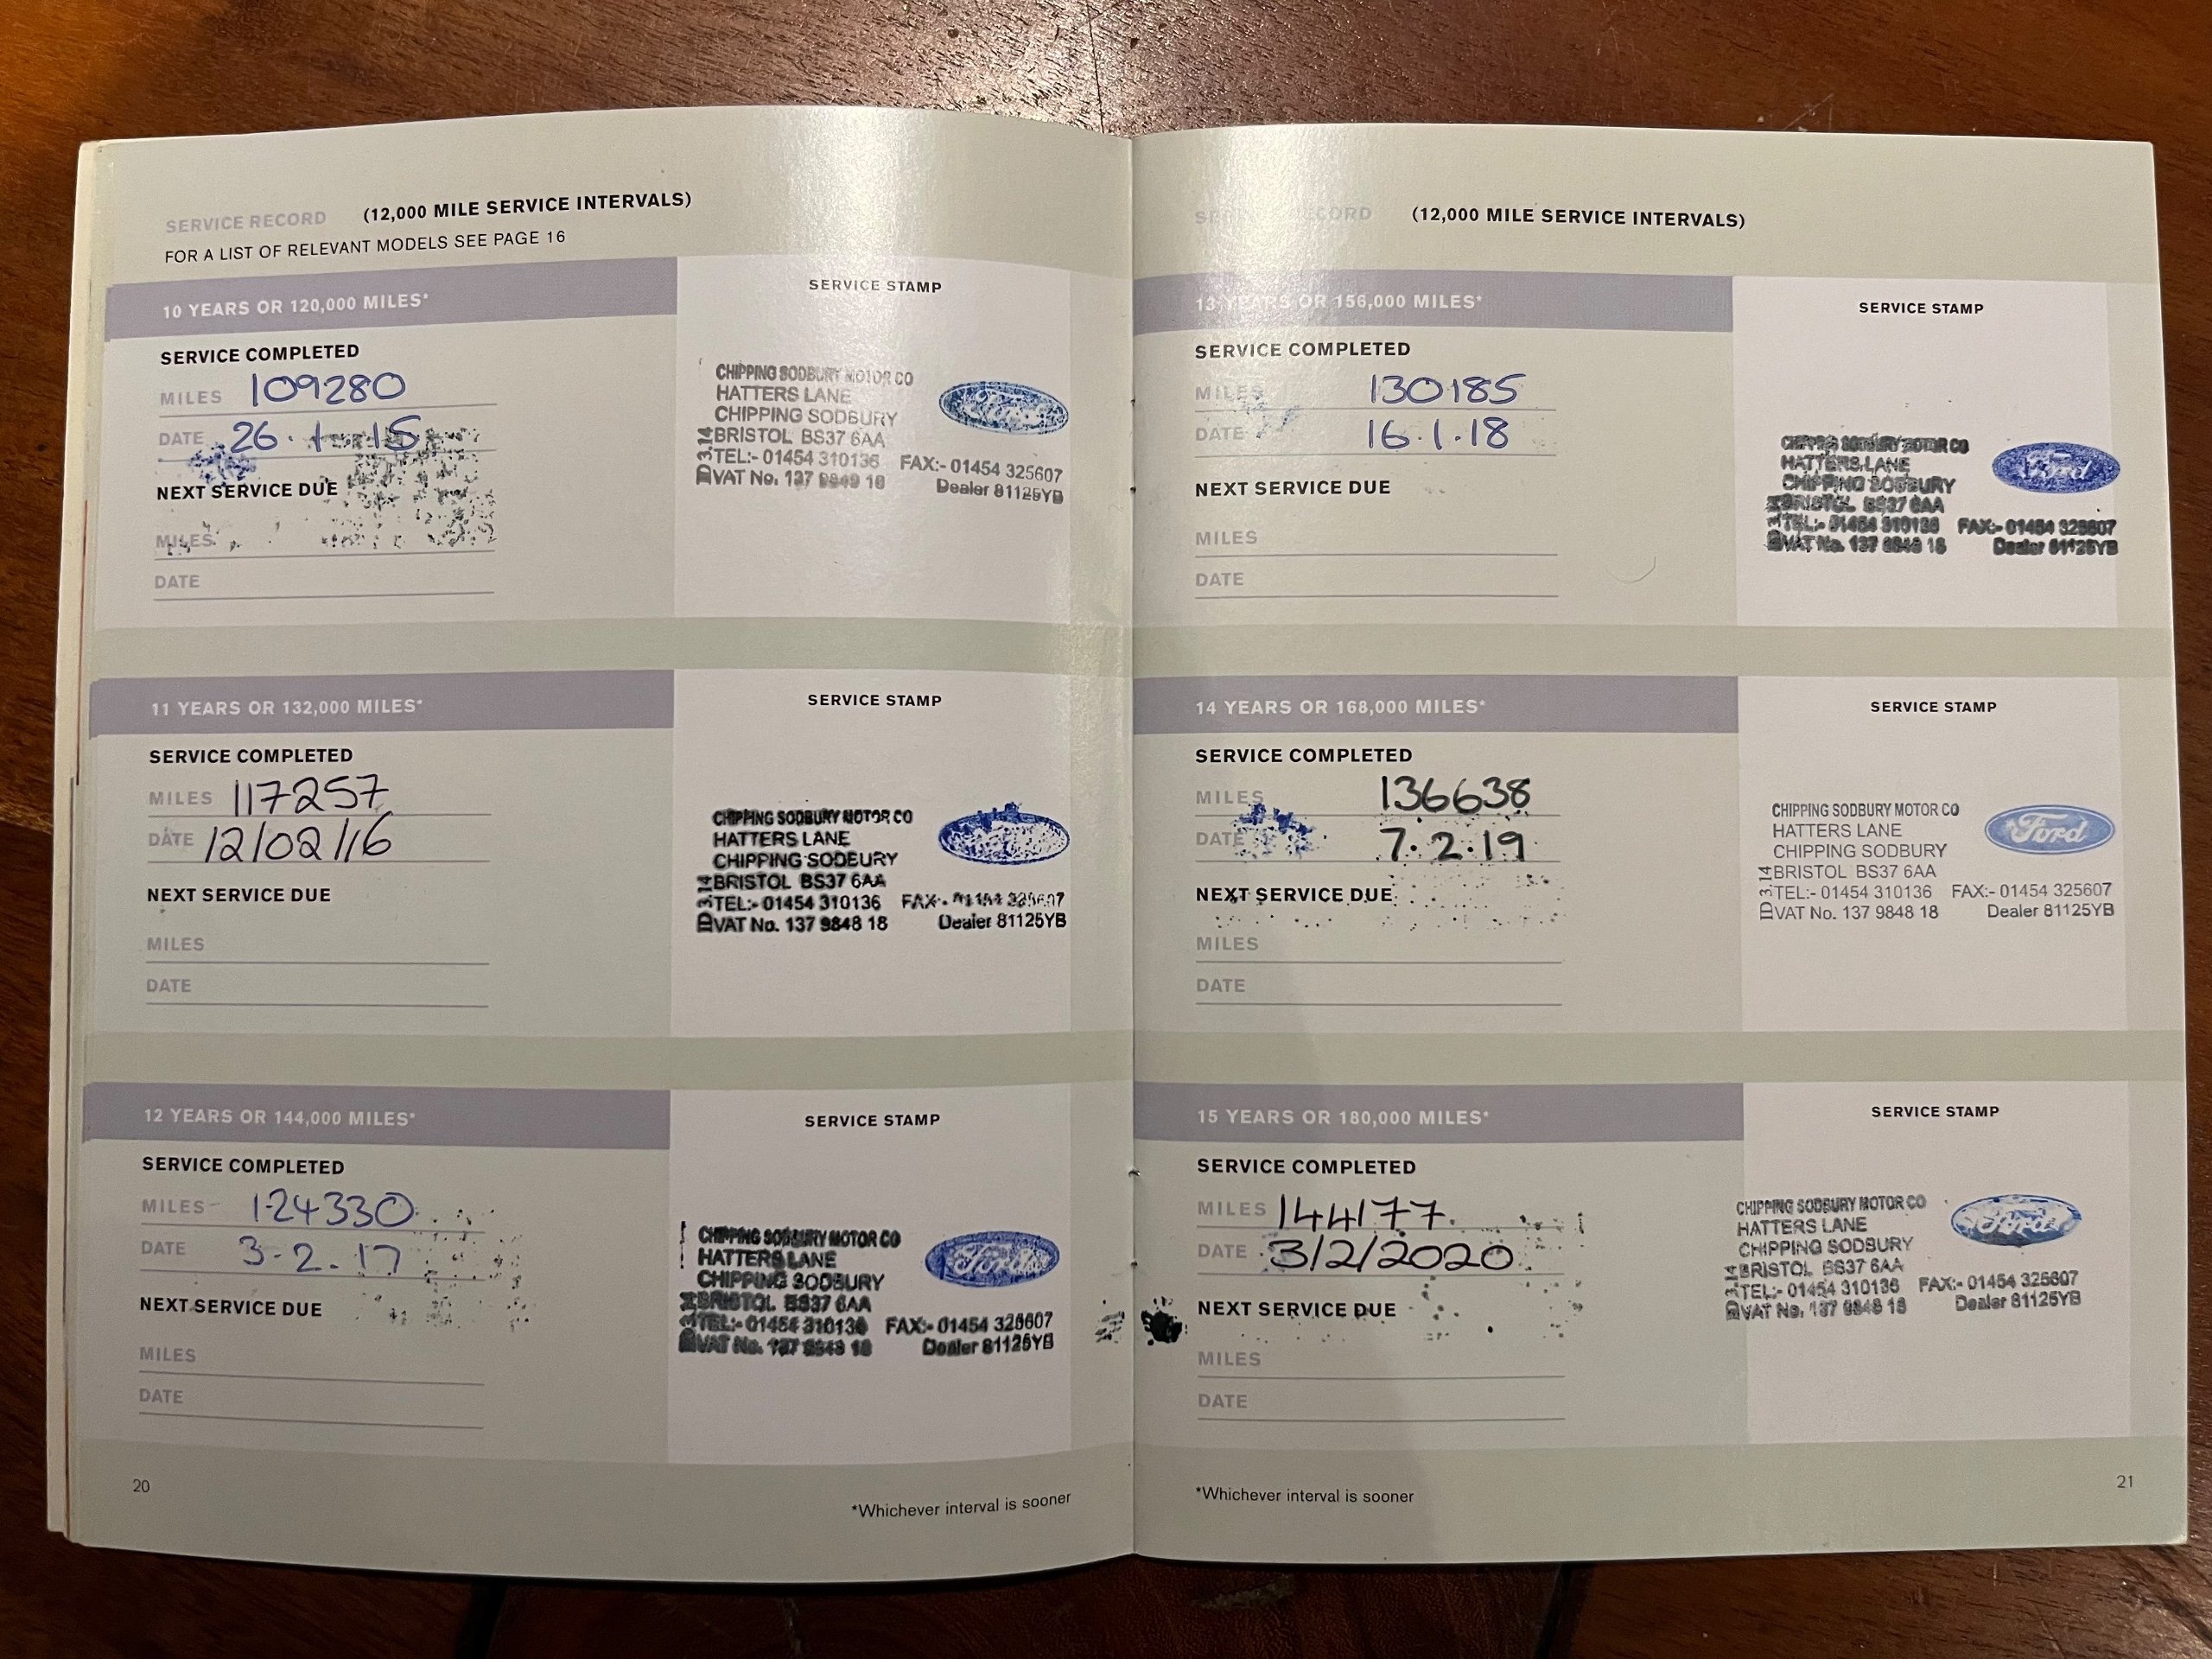 SERVICE RECORD (12,000 MILE SERVICE INTERVALS)
FOR A LIST OF RELEVANT MODELS SEE PAGE 16
10 YEARS OR 120,000 MILES*
SERVICE COMPLETED
MILES 109280
DATE 26.1.15
NEXT SERVICE DUE
MILES
DATE
SERVICE STAMP
CHIPPING SODBURY MOTOR CO
HATTERS LANE
CHIPPING SODBURY
BRISTOL BS37 6AA
TEL:- 01454 310136 FAX:- 01454 325607
VAT No. 137 9848 18 Dealer 81125YB
ID 3.14
Ford
11 YEARS OR 132,000 MILES*
SERVICE COMPLETED
MILES 117257
DATE 12/02/16
NEXT SERVICE DUE
MILES
DATE
SERVICE STAMP
CHIPPING SODBURY MOTOR CO
HATTERS LANE
CHIPPING SODBURY
BRISTOL BS37 6AA
TEL:- 01454 310136 FAX:- 01454 325607
VAT No. 137 9848 18 Dealer 81125YB
12 YEARS OR 144,000 MILES*
SERVICE COMPLETED
MILES 124330
DATE 3-2.17
NEXT SERVICE DUE
MILES
DATE
SERVICE STAMP
CHIPPING SODBURY MOTOR CO
HATTERS LANE
CHIPPING SODBURY
BRISTOL BS37 6AA
TEL:- 01454 310136 FAX:- 01454 325607
VAT No. 137 9848 18 Dealer 81125YB
Ford
20
*Whichever interval is sooner
SERVICE RECORD (12,000 MILE SERVICE INTERVALS)
13 YEARS OR 156,000 MILES*
SERVICE COMPLETED
MILES 130185
DATE 16.1.18
NEXT SERVICE DUE
MILES
DATE
SERVICE STAMP
CHIPPING SODBURY MOTOR CO
HATTERS LANE
CHIPPING SODBURY
BRISTOL BS37 6AA
TEL:- 01454 310136 FAX:- 01454 325607
VAT No. 137 9848 18 Dealer 81125YB
Ford
14 YEARS OR 168,000 MILES*
SERVICE COMPLETED
MILES 136638
DATE 7.2.19
NEXT SERVICE DUE
MILES
DATE
SERVICE STAMP
CHIPPING SODBURY MOTOR CO
HATTERS LANE
CHIPPING SODBURY
BRISTOL BS37 6AA
TEL:- 01454 310136 FAX:- 01454 325607
VAT No. 137 9848 18 Dealer 81125YB
ID 3.14
Ford
15 YEARS OR 180,000 MILES*
SERVICE COMPLETED
MILES 144177
DATE 3/2/2020
NEXT SERVICE DUE
MILES
DATE
SERVICE STAMP
CHIPPING SODBURY MOTOR CO
HATTERS LANE
CHIPPING SODBURY
BRISTOL BS37 6AA
TEL:- 01454 310136 FAX:- 01454 325607
VAT No. 137 9848 18 Dealer 81125YB
Ford
*Whichever interval is sooner
21